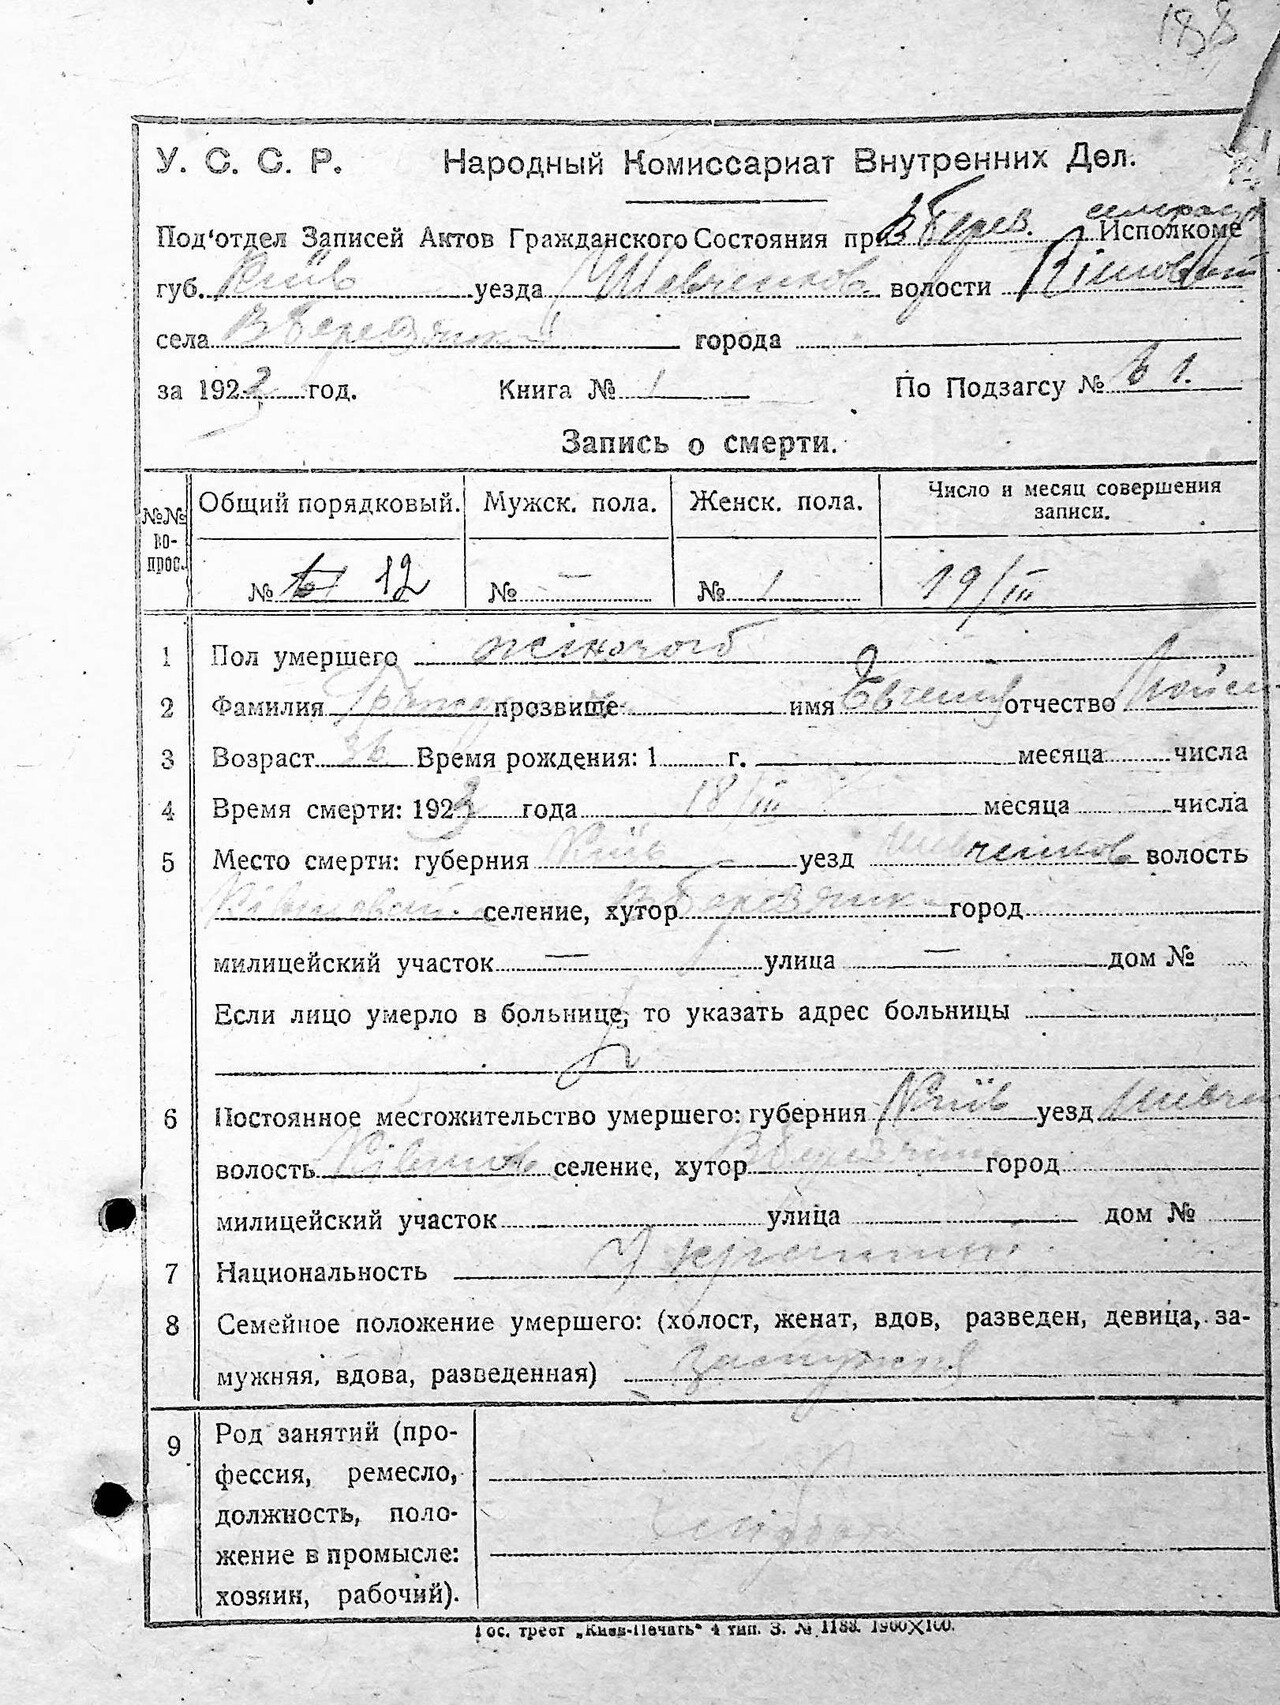 188
У. С. С. Р. Народный Комиссариат Внутренних Дел.
Под'отдел Записей Актов Гражданского Состояния при В Берез. Исполкоме
губ. Київ уезда Шевченков волости
села В Березянка города
за 1923 год. Книга № 1 По Подзагсу №
Запись о смерти.
№№ вопрос. Общий порядковый. Мужск. пола. Женск. пола. Число и месяц совершения записи.
№ 12 № — № 1 19/III
1 Пол умершего жіночого
2 Фамилия прозвище имя Євгенія отчество
3 Возраст 36 Время рождения: 1 г. месяца числа
4 Время смерти: 1923 года 18/III месяца числа
5 Место смерти: губерния Київ уезд Шевченков волость
селение, хутор В Березянка город
милицейский участок — улица — дом №
Если лицо умерло в больнице, то указать адрес больницы
6 Постоянное местожительство умершего: губерния Київ уезд Шевчен
волость селение, хутор город
милицейский участок улица дом №
7 Национальность
8 Семейное положение умершего: (холост, женат, вдов, разведен, девица, за-
мужняя, вдова, разведенная) замужня
9 Род занятий (про-
фессия, ремесло,
должность, поло-
жение в промысле:
хозяин, рабочий).
Гос. трест „Киев-Печать“ 4 тип. З. № 1188. 1900×100.